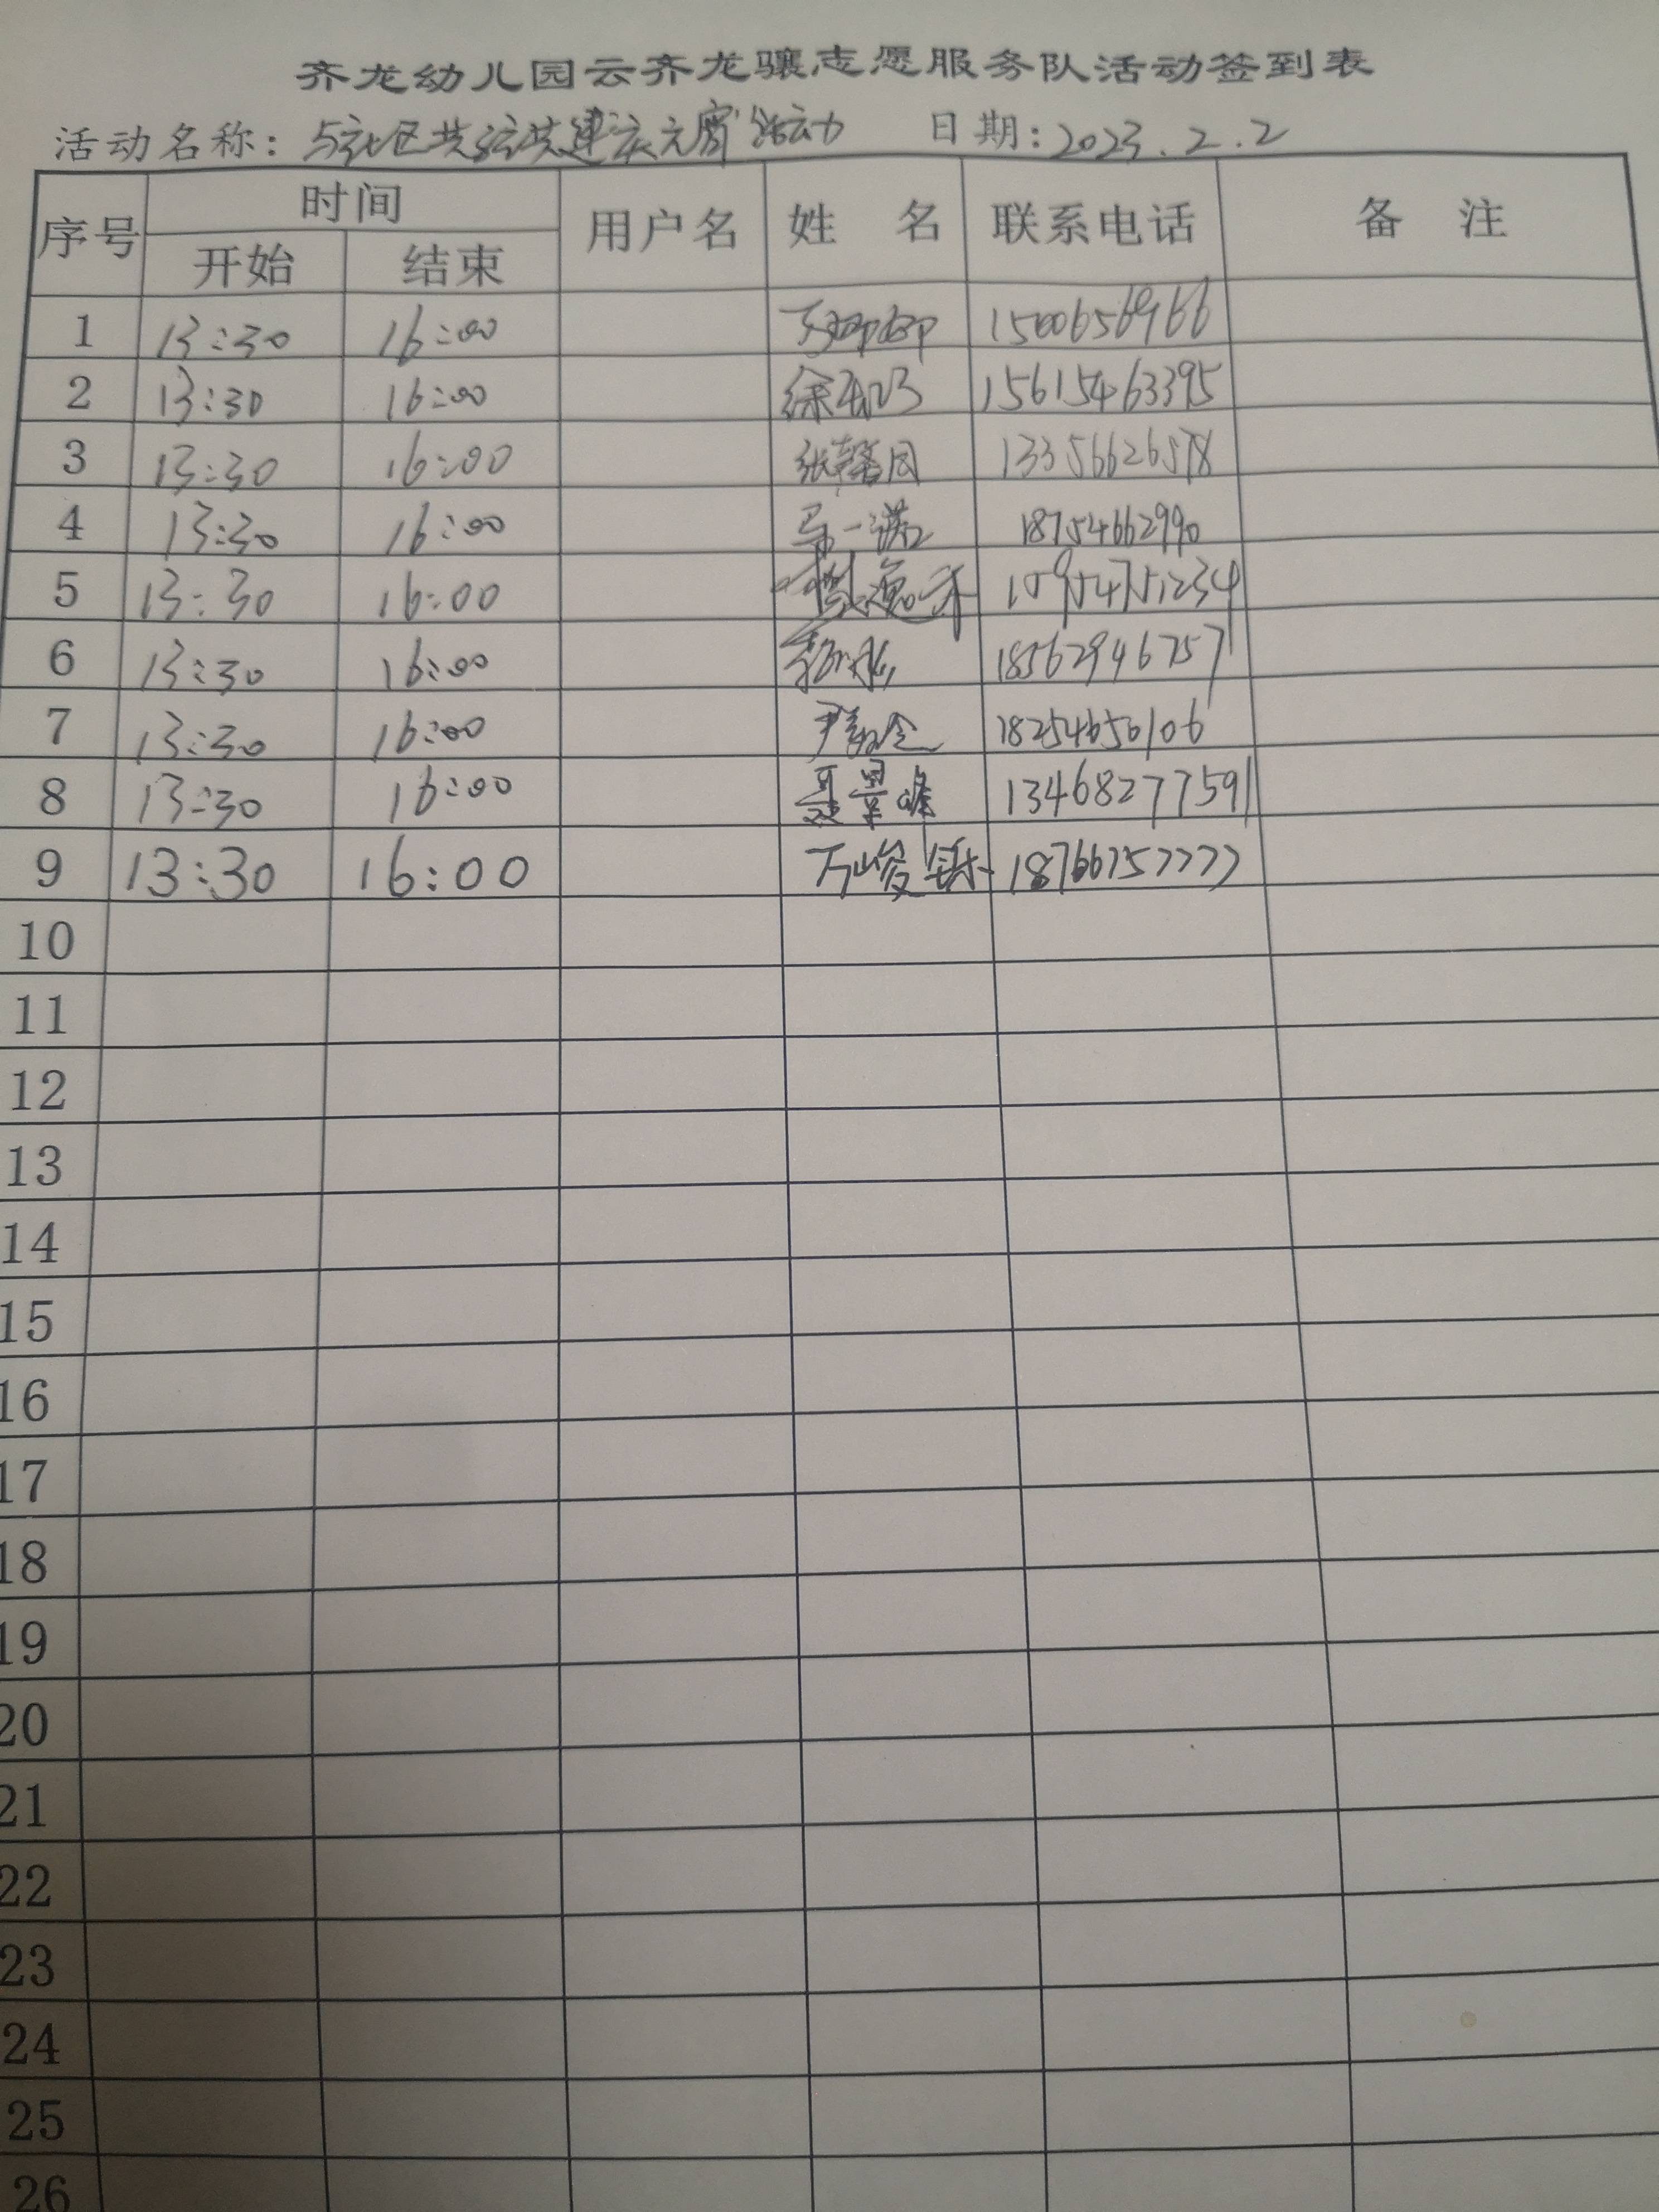 齐龙幼儿园云齐龙骧志愿服务队活动签到表
活动名称：与社区共驻共建庆元宵活动 日期：2023.2.2
序号 时间 用户名 姓 名 联系电话 备 注
开始 结束
1 13:30 16:00 15006656966
2 13:30 16:00 15615463395
3 13:30 16:00 张馨月 13356626578
4 13:30 16:00 马一诺 18754662990
5 13:30 16:00 15954751234
6 13:30 16:00 18562946757
7 13:30 16:00 18254650106
8 13:30 16:00 聂景峰 13468277591
9 13:30 16:00 万峻铄 18766757777
10
11
12
13
14
15
16
17
18
19
20
21
22
23
24
25
26